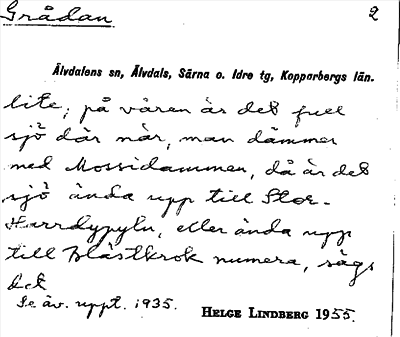 Grådan 2
Älvdalens sn, Älvdals, Särna o. Idre tg, Kopparbergs län.
lite, på våren är det full
sjö där när, man dämmer
med Mossidammen, då är det
sjö ända upp till Stor-
Harrdypyln, eller ända upp
till Blästkrok numera, sägs
det
Se äv. uppt. 1935.
HELGE LINDBERG 1955.